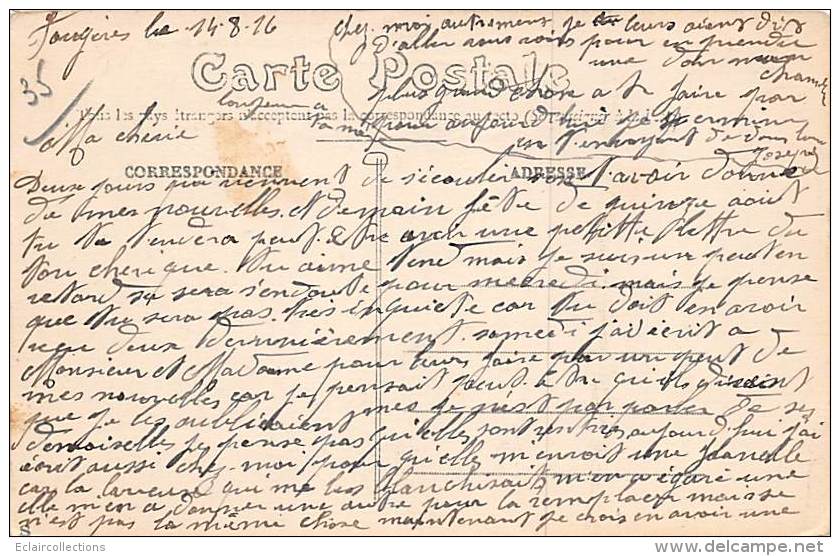 Fougères le 14-8-16
35
Carte Postale
Tous les pays étrangers n'acceptent pas la correspondance au recto
Ma chérie
CORRESPONDANCE
ADRESSE
Deux jours qui viennent de s'écouler sans t'avoir donné
de mes nouvelles et demain fête de quinze aout
tu t'en peut-être avoir une petitte lettre du
ton cherique tu aime tend mais je suis un peu en
retard sa sera s'en doute pour mecredi mais je pense
que tu sera pas très inquiète car tu doit en avoir
reçu deux dernnièrement. samedi j'ai écrit a
Monsieur et Madame pour leurs faire par un peut de
mes nouvelles car je pensait peut-être qu'ils disaient
que je les oubliaient mes je n'est pas parler de ses
demoiselles je pense pas qu'elles sont rentres aujourd'hui j'ai
écrit aussi chez-moi pour qu'elle m'envoit une flanelle
car la laveuse qui me les blanchisait m'en a égaré une
elle m'en a donner une autre pour la remplacer mais se
n'est pas la même chose maintenant je crois en avoir une
chez moi autrement je leurs aient dis
d'aller sous soins pour en prendre
une dans
chambre
plus grand chose a te faire par
pour aujourd'hui je termine
en t'envoyant de doux
toujours a
Joseph
S
Eclaircollections
delcampe.net